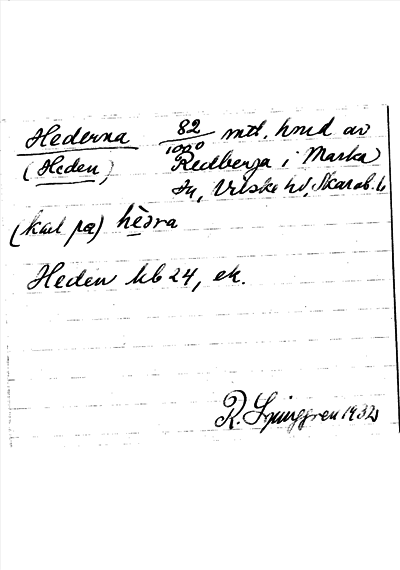 Hederna 82/1000 mtl. hmd av
(Heden) Redberga i Marka
sn, Vilske hd, Skarab. l.
(kall pæ) hèdra
Heden kb 24, ek.
R. Ljunggren 1932